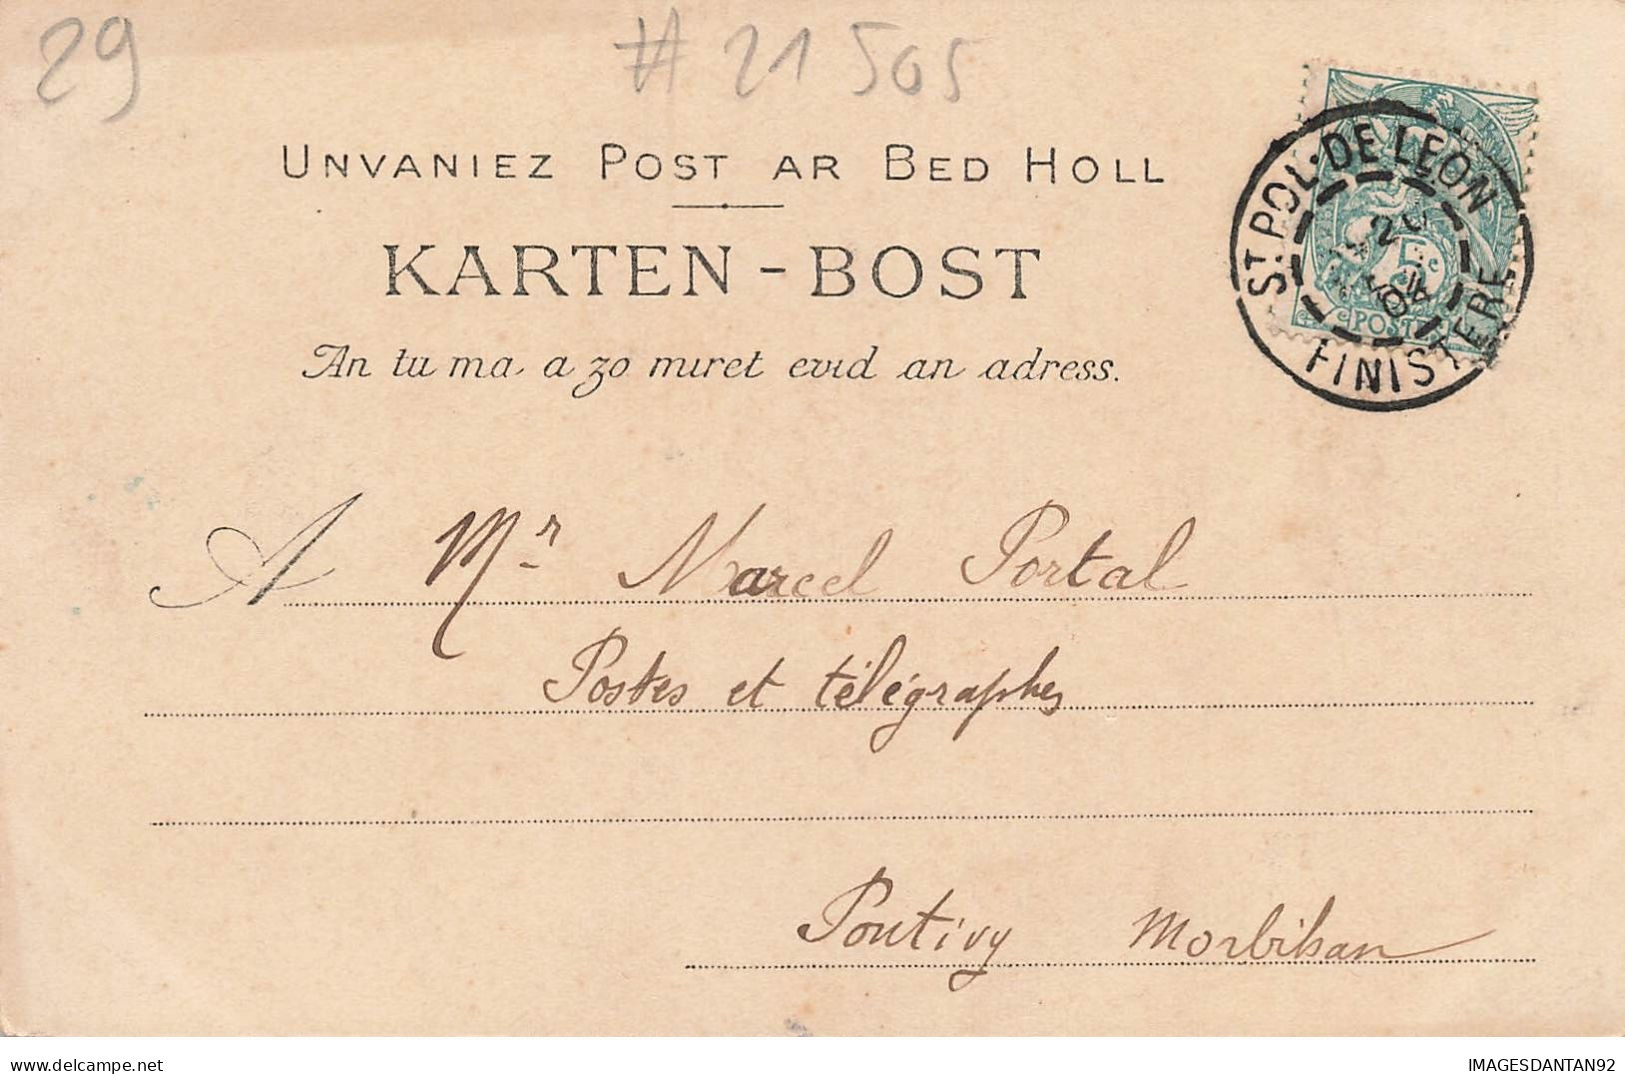 29
# 21505
UNVANIEZ POST AR BED HOLL
KARTEN-BOST
An tu ma a zo miret evid an adress.
ST. POL-DE LEON
20
04
FINISTERE
5c
POSTES
A Mr Marcel Portal
Postes et télégraphes
Pontivy Morbihan
IMAGESDANTAN92